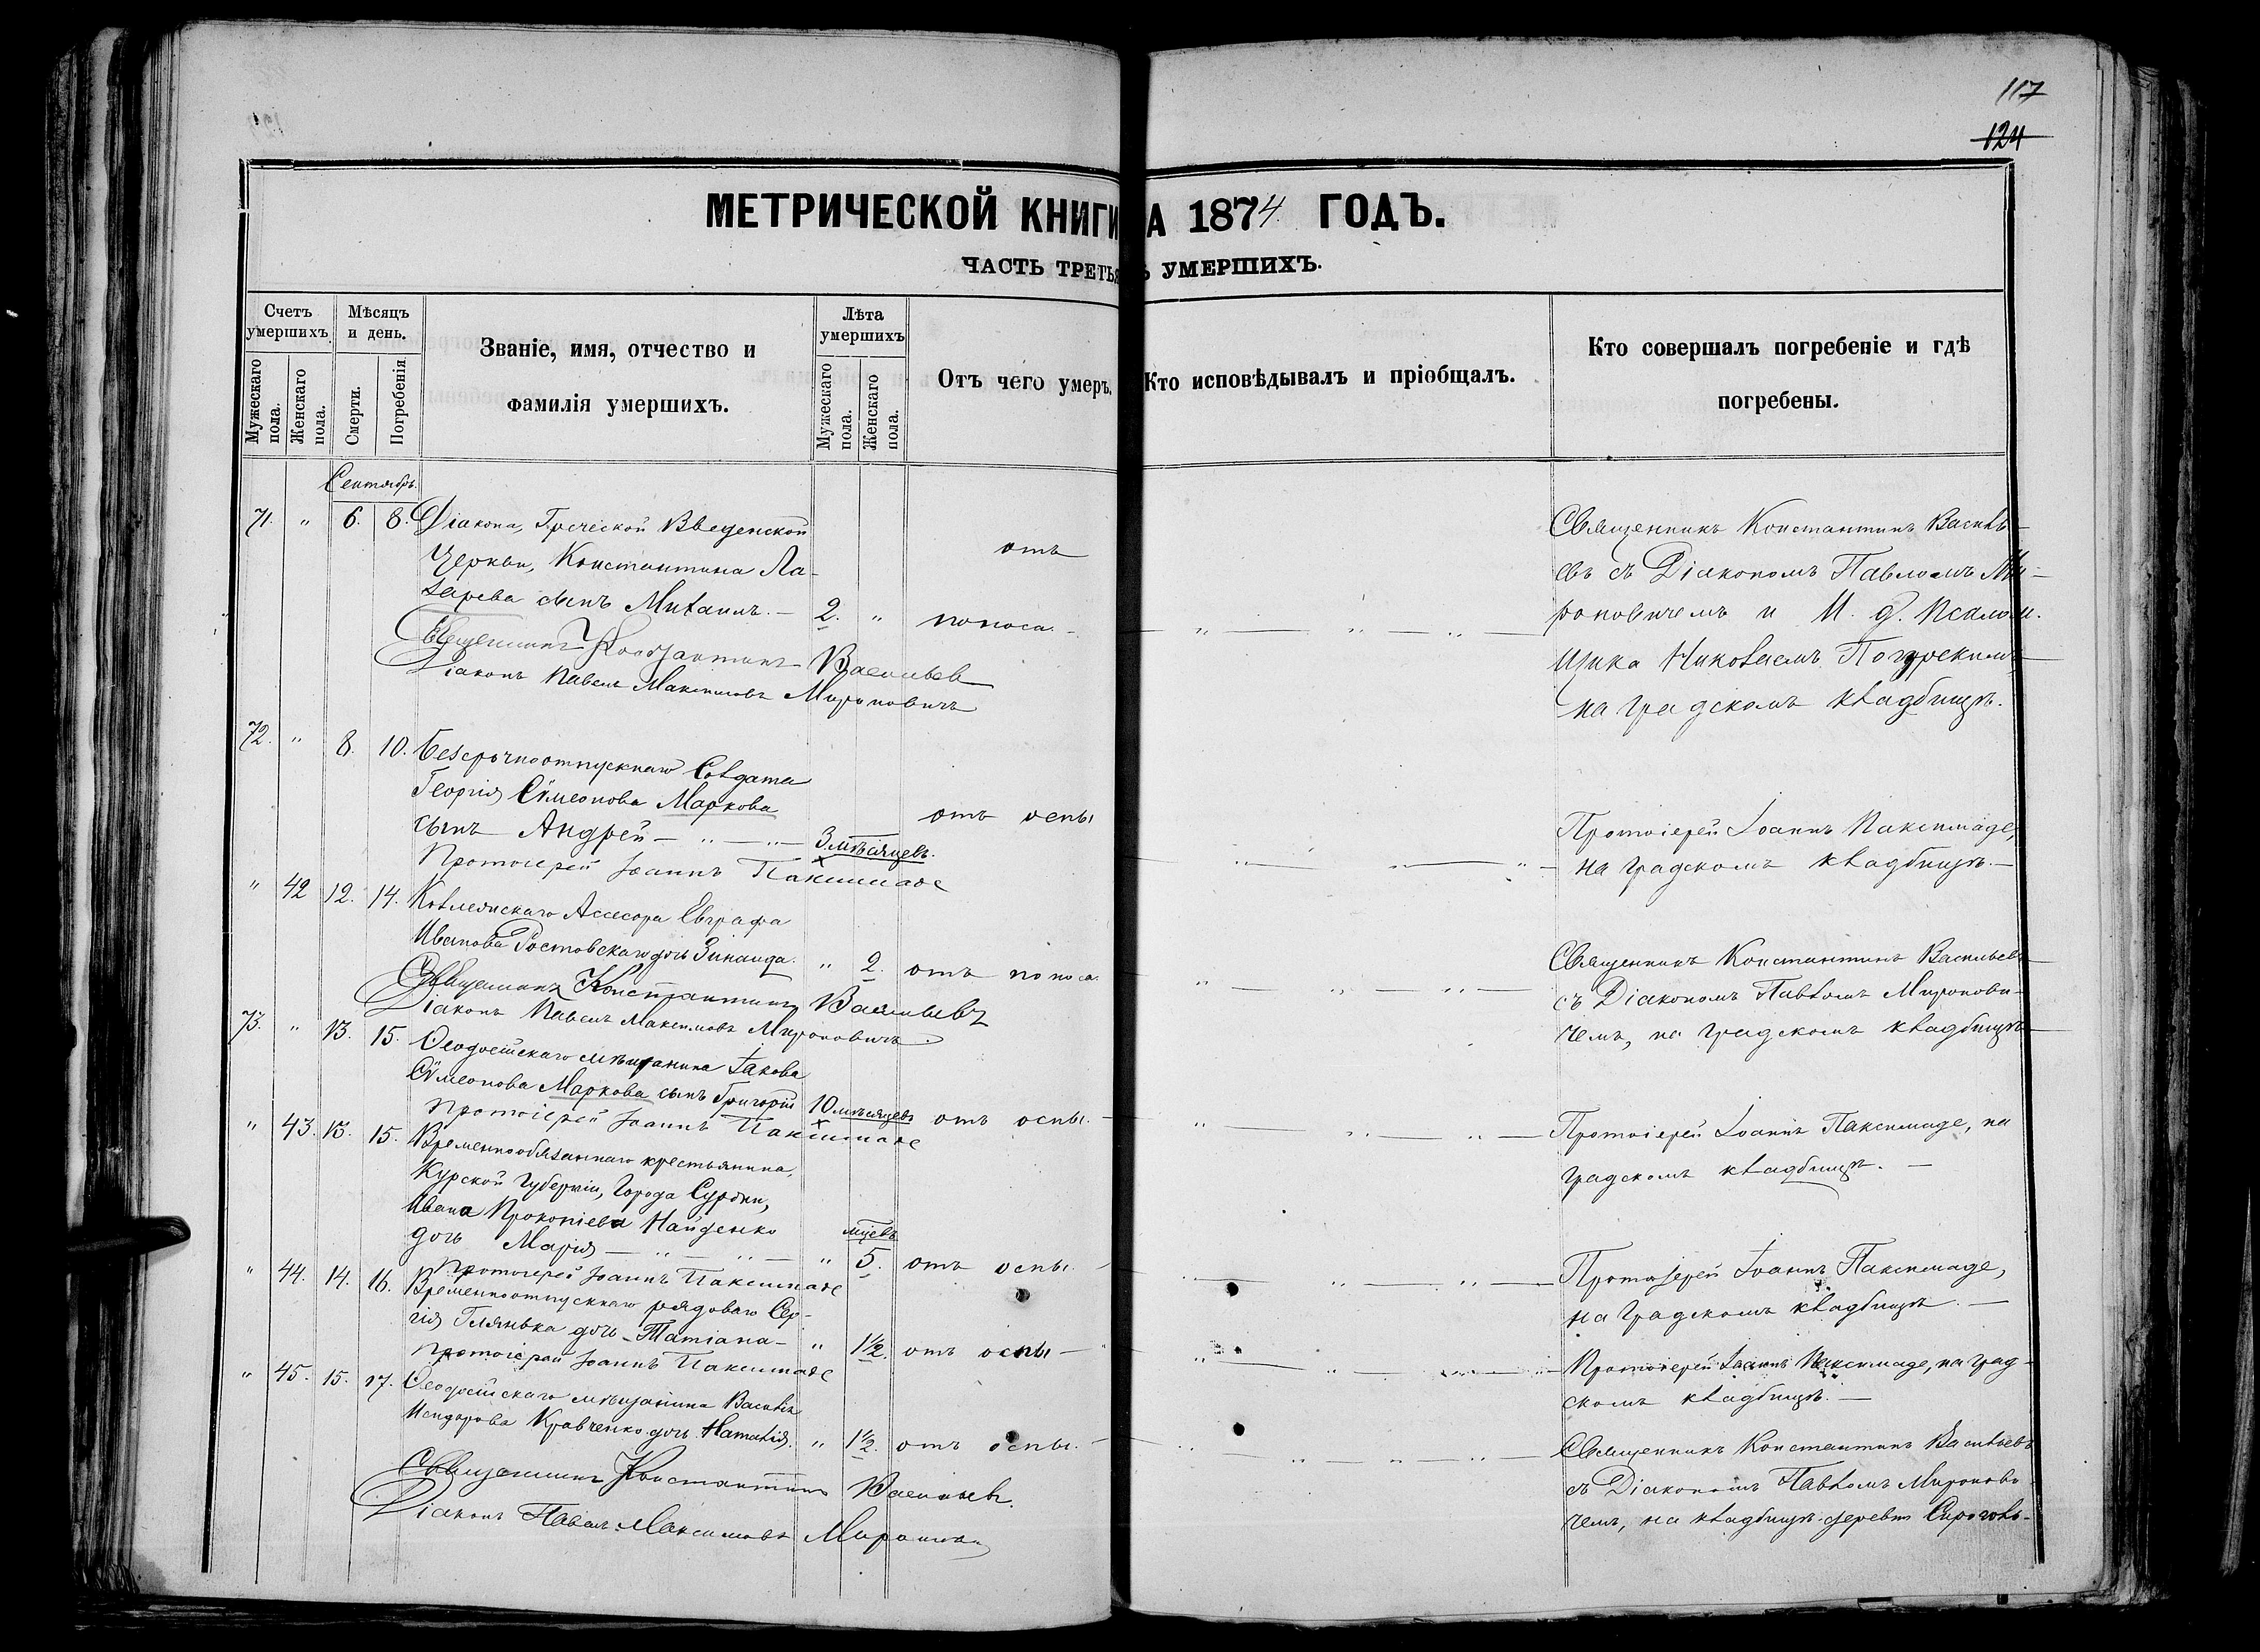 117
124
МЕТРИЧЕСКОЙ КНИГИ
А 1874 ГОДЪ.
ЧАСТЬ ТРЕТЬЯ
УМЕРШИХЪ.
Счетъ умершихъ.
Мужескаго пола.
Женскаго пола.
Мѣсяцъ и день.
Смерти.
Погребенія
Званіе, имя, отчество и
фамилія умершихъ.
Лѣта умершихъ
Мужескаго пола.
Женскаго пола.
Отъ чего умеръ.
Кто исповѣдывалъ и пріобщалъ.
Кто совершалъ погребеніе и гдѣ
погребены.
Сентябрь.
71. " 6. 8. Діакона, Греческой Введенской
Церкви, Константина Ла-
зарева сынъ Михаилъ. — 2. " отъ поноса. —
Священникъ Константинъ Васильев
Діаконъ Павелъ Максимовъ Мироновичъ
Священникъ Константинъ Василь-
евъ съ Діакономъ Павломъ Ми-
роновичемъ и И. д. Псалом-
щика Николаемъ
на градскомъ кладбищѣ.
72. " 8. 10. Безсрочноотпускнаго Солдата
Георгія Сѵмеонова Маркова
сынъ Андрей — " — " — 3 мѣсяцевъ. отъ оспы
Протоіерей Іоаннъ Паксимаде
Протоіерей Іоаннъ Паксимаде,
на градскомъ кладбищѣ. —
" 42 12. 14. Коллежскаго Ассесора Евграфа
Иванова Ростовскаго дочь Зинаида. " 2. отъ поноса.
Священникъ Константинъ Васильевъ
Діаконъ Павелъ Максимовъ Мироновичъ.
Священникъ Константинъ Васильевъ
съ Діакономъ Павломъ Миронови-
чемъ, на градскомъ кладбищѣ
73. " 13. 15. Ѳеодосійскаго мѣщанина Іакова
Сѵмеонова Маркова сынъ Григорій 10 мѣсяцевъ отъ оспы. —
Протоіерей Іоаннъ Паксимаде
Протоіерей Іоаннъ Паксимаде, на
градскомъ кладбищѣ. —
" 43. 13. 15. Временнообязаннаго крестьянина,
Курской Губерніи, Города Суджи,
Ивана Прокопіева Найденко
дочь Марія — " — " — " мцевъ 5. отъ оспы. —
Протоіерей Іоаннъ Паксимаде
Протоіерей Іоаннъ Паксимаде,
на градскомъ кладбищѣ. —
" 44. 14. 16. Временноотпускнаго рядоваго Сер-
гія дочь Татіана — " 1½. отъ оспы —
Протоіерей Іоаннъ Паксимаде
Протоіерей Іоаннъ Паксимаде, на град-
скомъ кладбищѣ. —
" 45. 15. 17. Ѳеодосійскаго мѣщанина Василія
Исидорова Кравченко дочь Наталія. " 1½. отъ оспы. —
Священникъ Константинъ Васильевъ.
Діаконъ Павелъ Максимовъ
Священникъ Константинъ Васильевъ
съ Діакономъ Павломъ Миронови-
чемъ, на кладбищѣ деревни